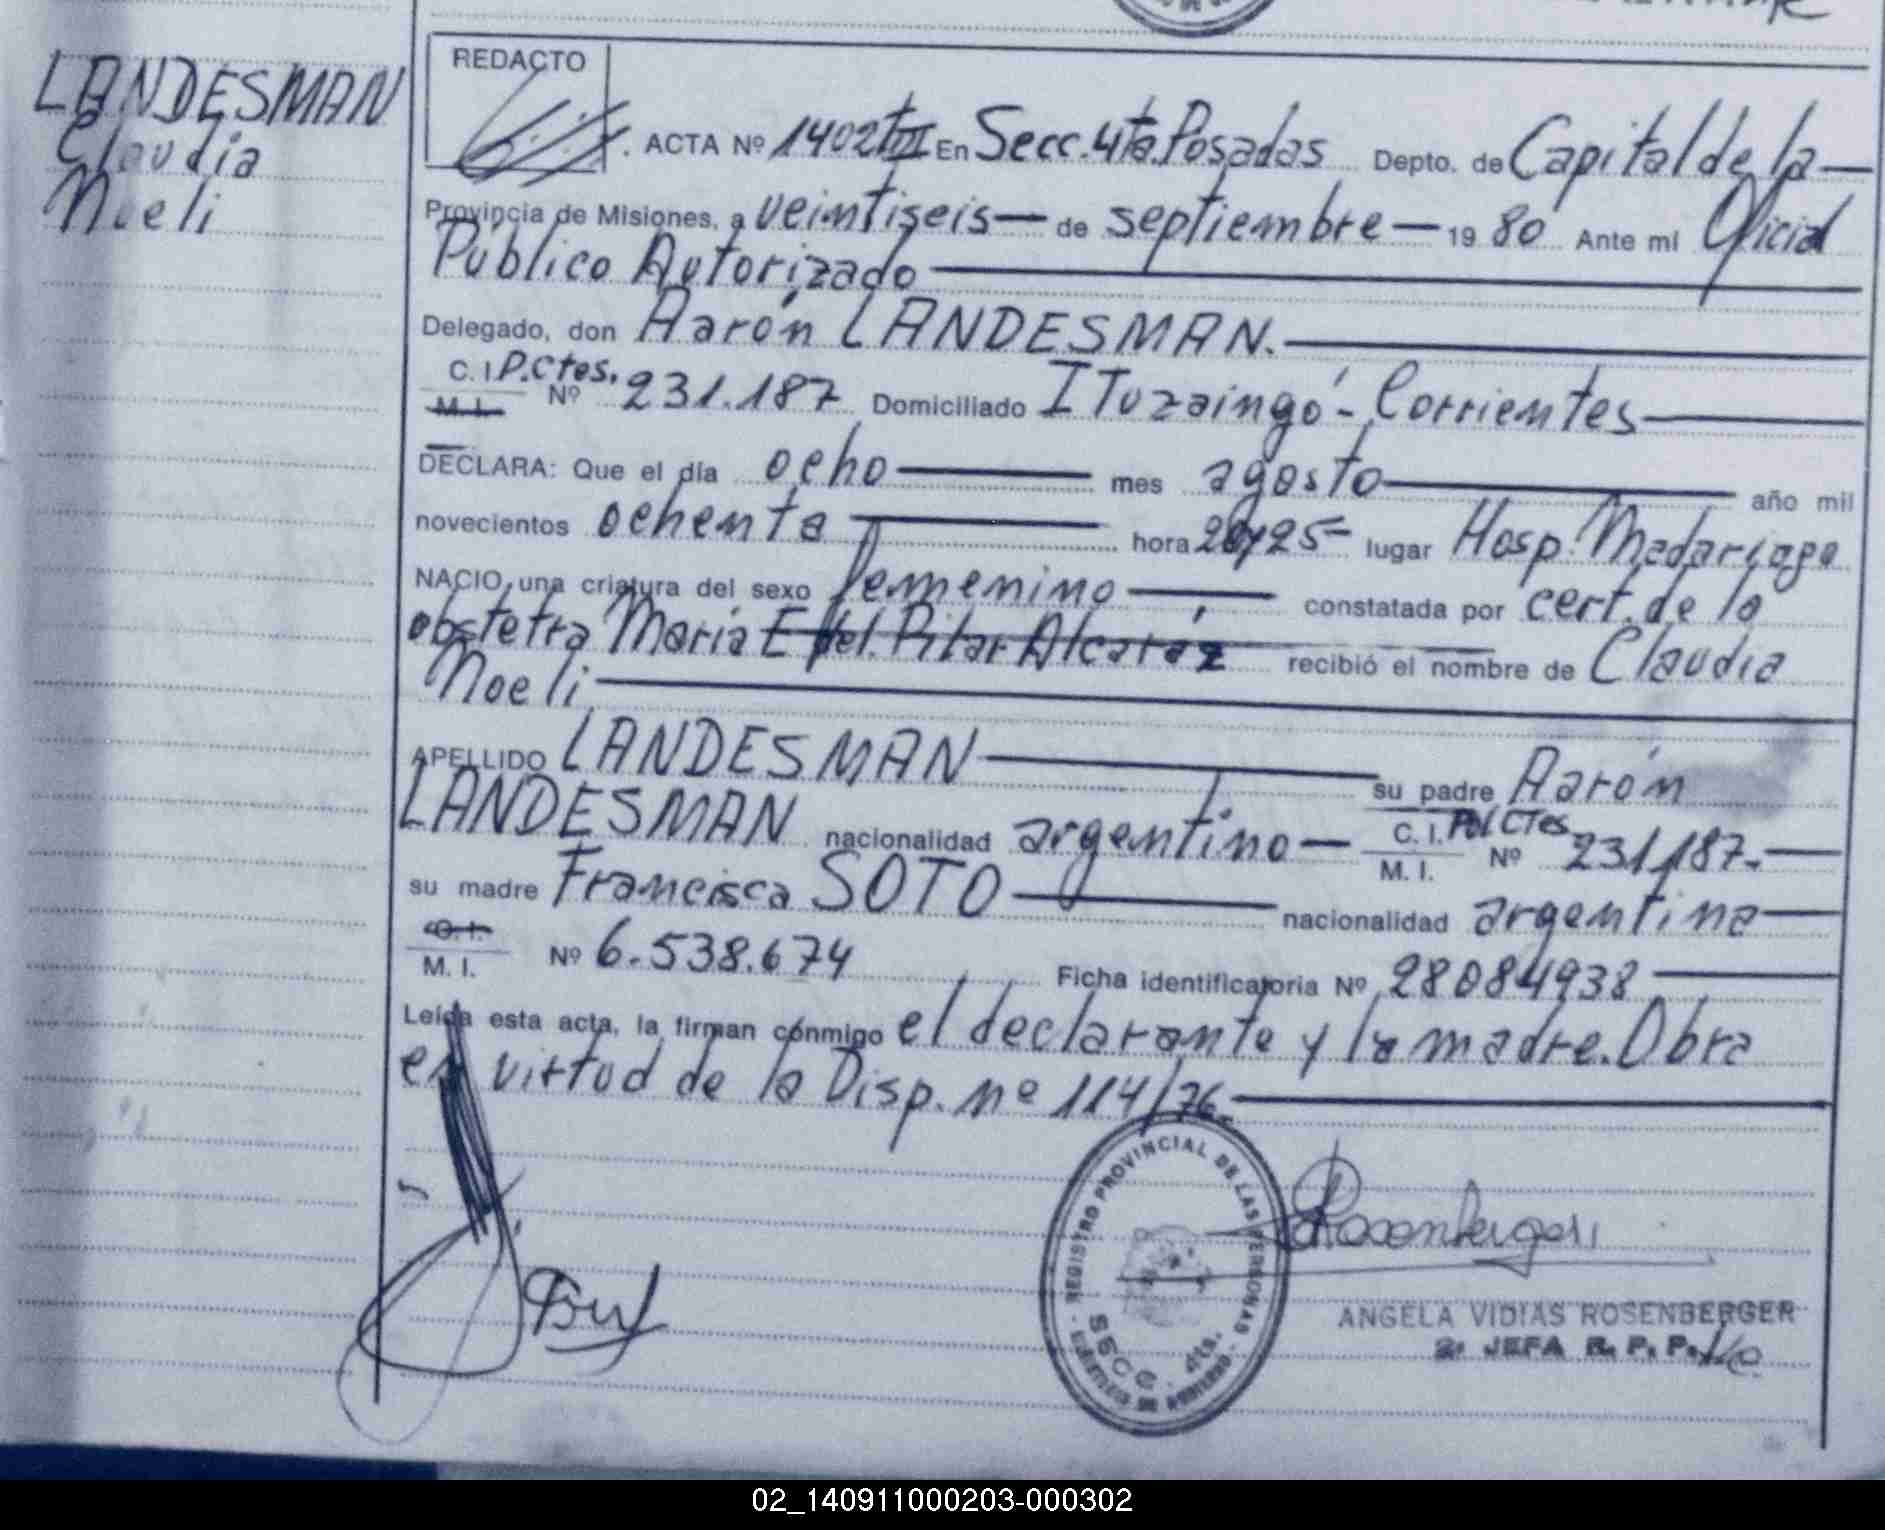 LANDESMAN
Claudia
Noeli
REDACTO
ACTA Nº 1402 TºIII En Secc. 4ta. Posadas Depto. de Capital de la
Provincia de Misiones, a veintiseis de septiembre 19 80 Ante mi Oficial
Público Autorizado
Delegado, don Aarón LANDESMAN.
C. I. P. Ctes.
M. I. Nº 231.187 Domiciliado ITuzaingó - Corrientes
DECLARA: Que el día ocho mes agosto año mil
novecientos ochenta hora lugar Hosp. Madariaga
NACIO una criatura del sexo femenino constatada por cert. de la
obstetra María E. del Pilar Alcaráz recibió el nombre de Claudia
Noeli
APELLIDO LANDESMAN su padre Aarón
LANDESMAN nacionalidad argentino C. I. Pol Ctes
M. I. Nº 231187.
su madre Francisca SOTO nacionalidad argentina
C. I.
M. I. Nº 6.538.674 Ficha identificatoria Nº 28084938
Leída esta acta, la firman conmigo el declarante y la madre. Obra
en virtud de la Disp. nº 114/76.
REGISTRO PROVINCIAL DE LAS PERSONAS
SECC. 4ta.
Rosenberger
ANGELA VIDIAS ROSENBERGER
2ª JEFA R. P. P.
02_140911000203-000302